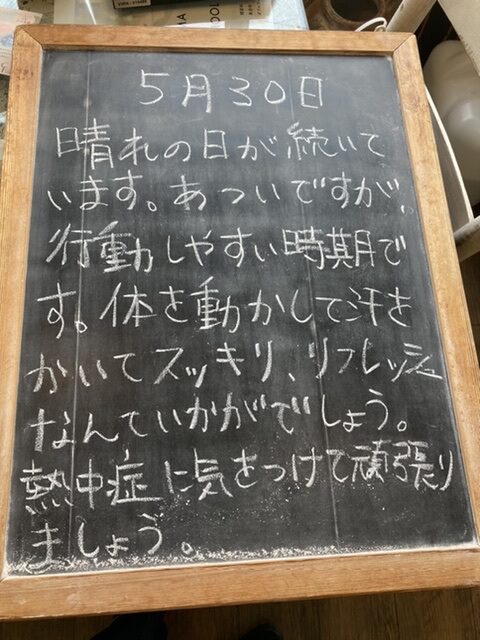 5月30日
晴れの日が続いて
います。あついですが、
行動しやすい時期で
す。体を動かして汗を
かいてスッキリ、リフレッシュ
なんていかがでしょう。
熱中症に気をつけて頑張り
ましょう。